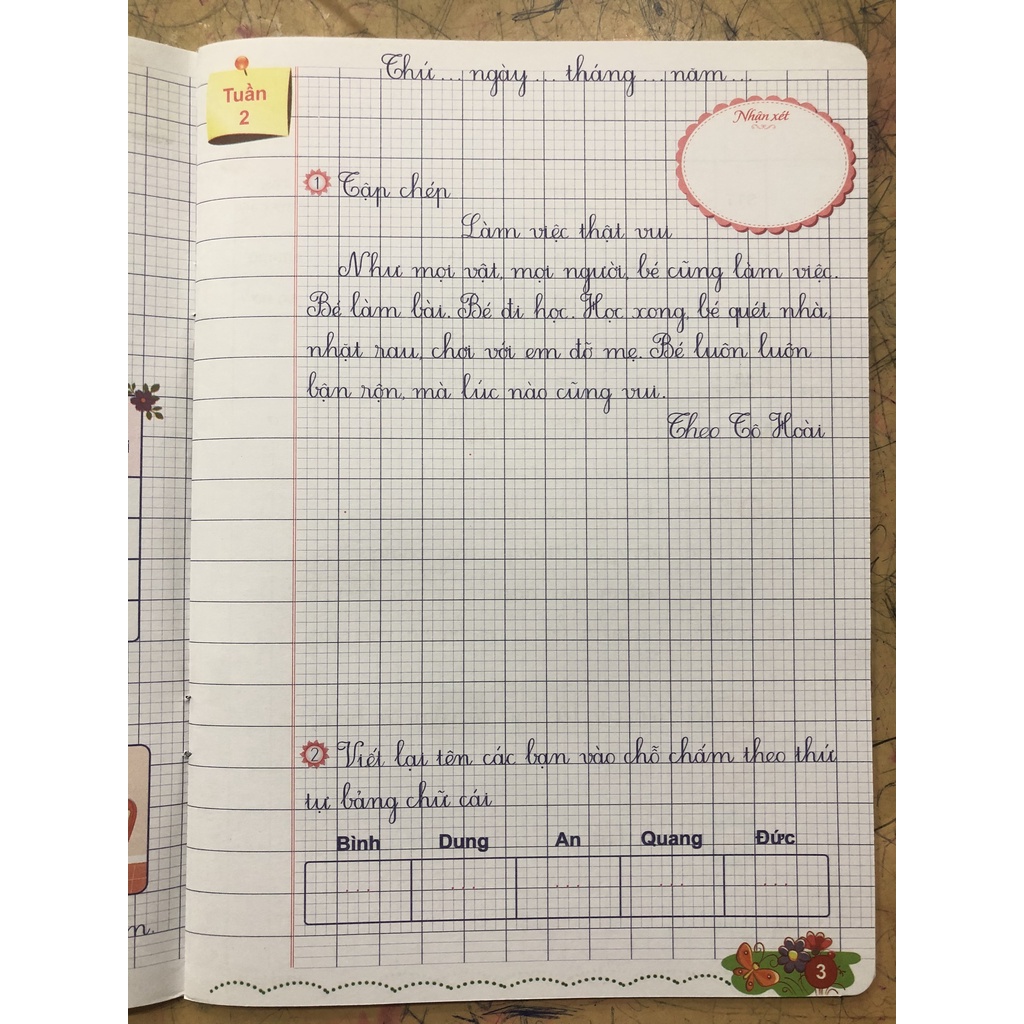 Thứ... ngày... tháng... năm...
Tuần
2
Nhận xét
1 Tập chép
Làm việc thật vui
Như mọi vật, mọi người, bé cũng làm việc.
Bé làm bài. Bé đi học. Học xong, bé quét nhà,
nhặt rau, chơi với em đỡ mẹ. Bé luôn luôn
bận rộn, mà lúc nào cũng vui.
Theo Tô Hoài
2 Viết lại tên các bạn vào chỗ chấm theo thứ
tự bảng chữ cái
Bình Dung An Quang Đức
... ... ... ... ...
3